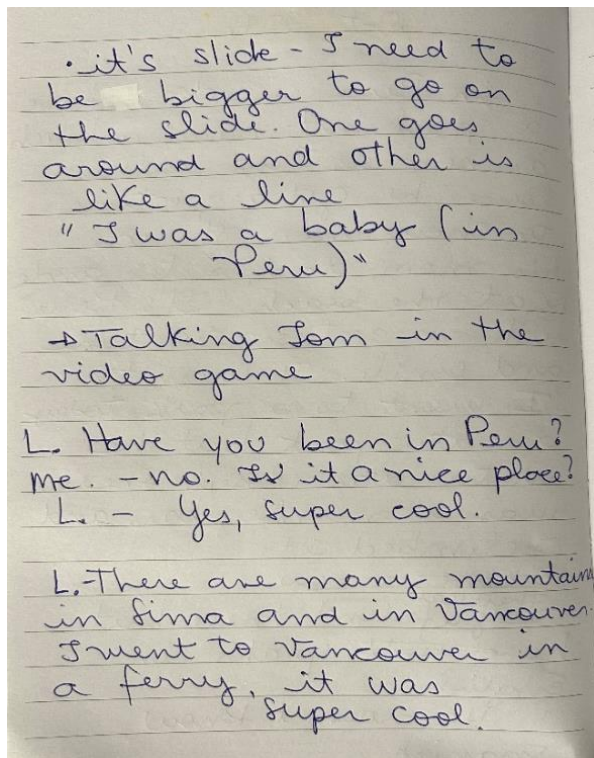 • it's slide - I need to
be bigger to go on
the slide. One goes
around and other is
like a line
" I was a baby (in
Peru)"
→ Talking Tom in the
video game
L. Have you been in Peru?
me. - no. Is it a nice place?
L. - Yes, super cool.
L.-There are many mountain
in Lima and in Vancouver.
I went to Vancouver in
a ferry, it was
super cool.